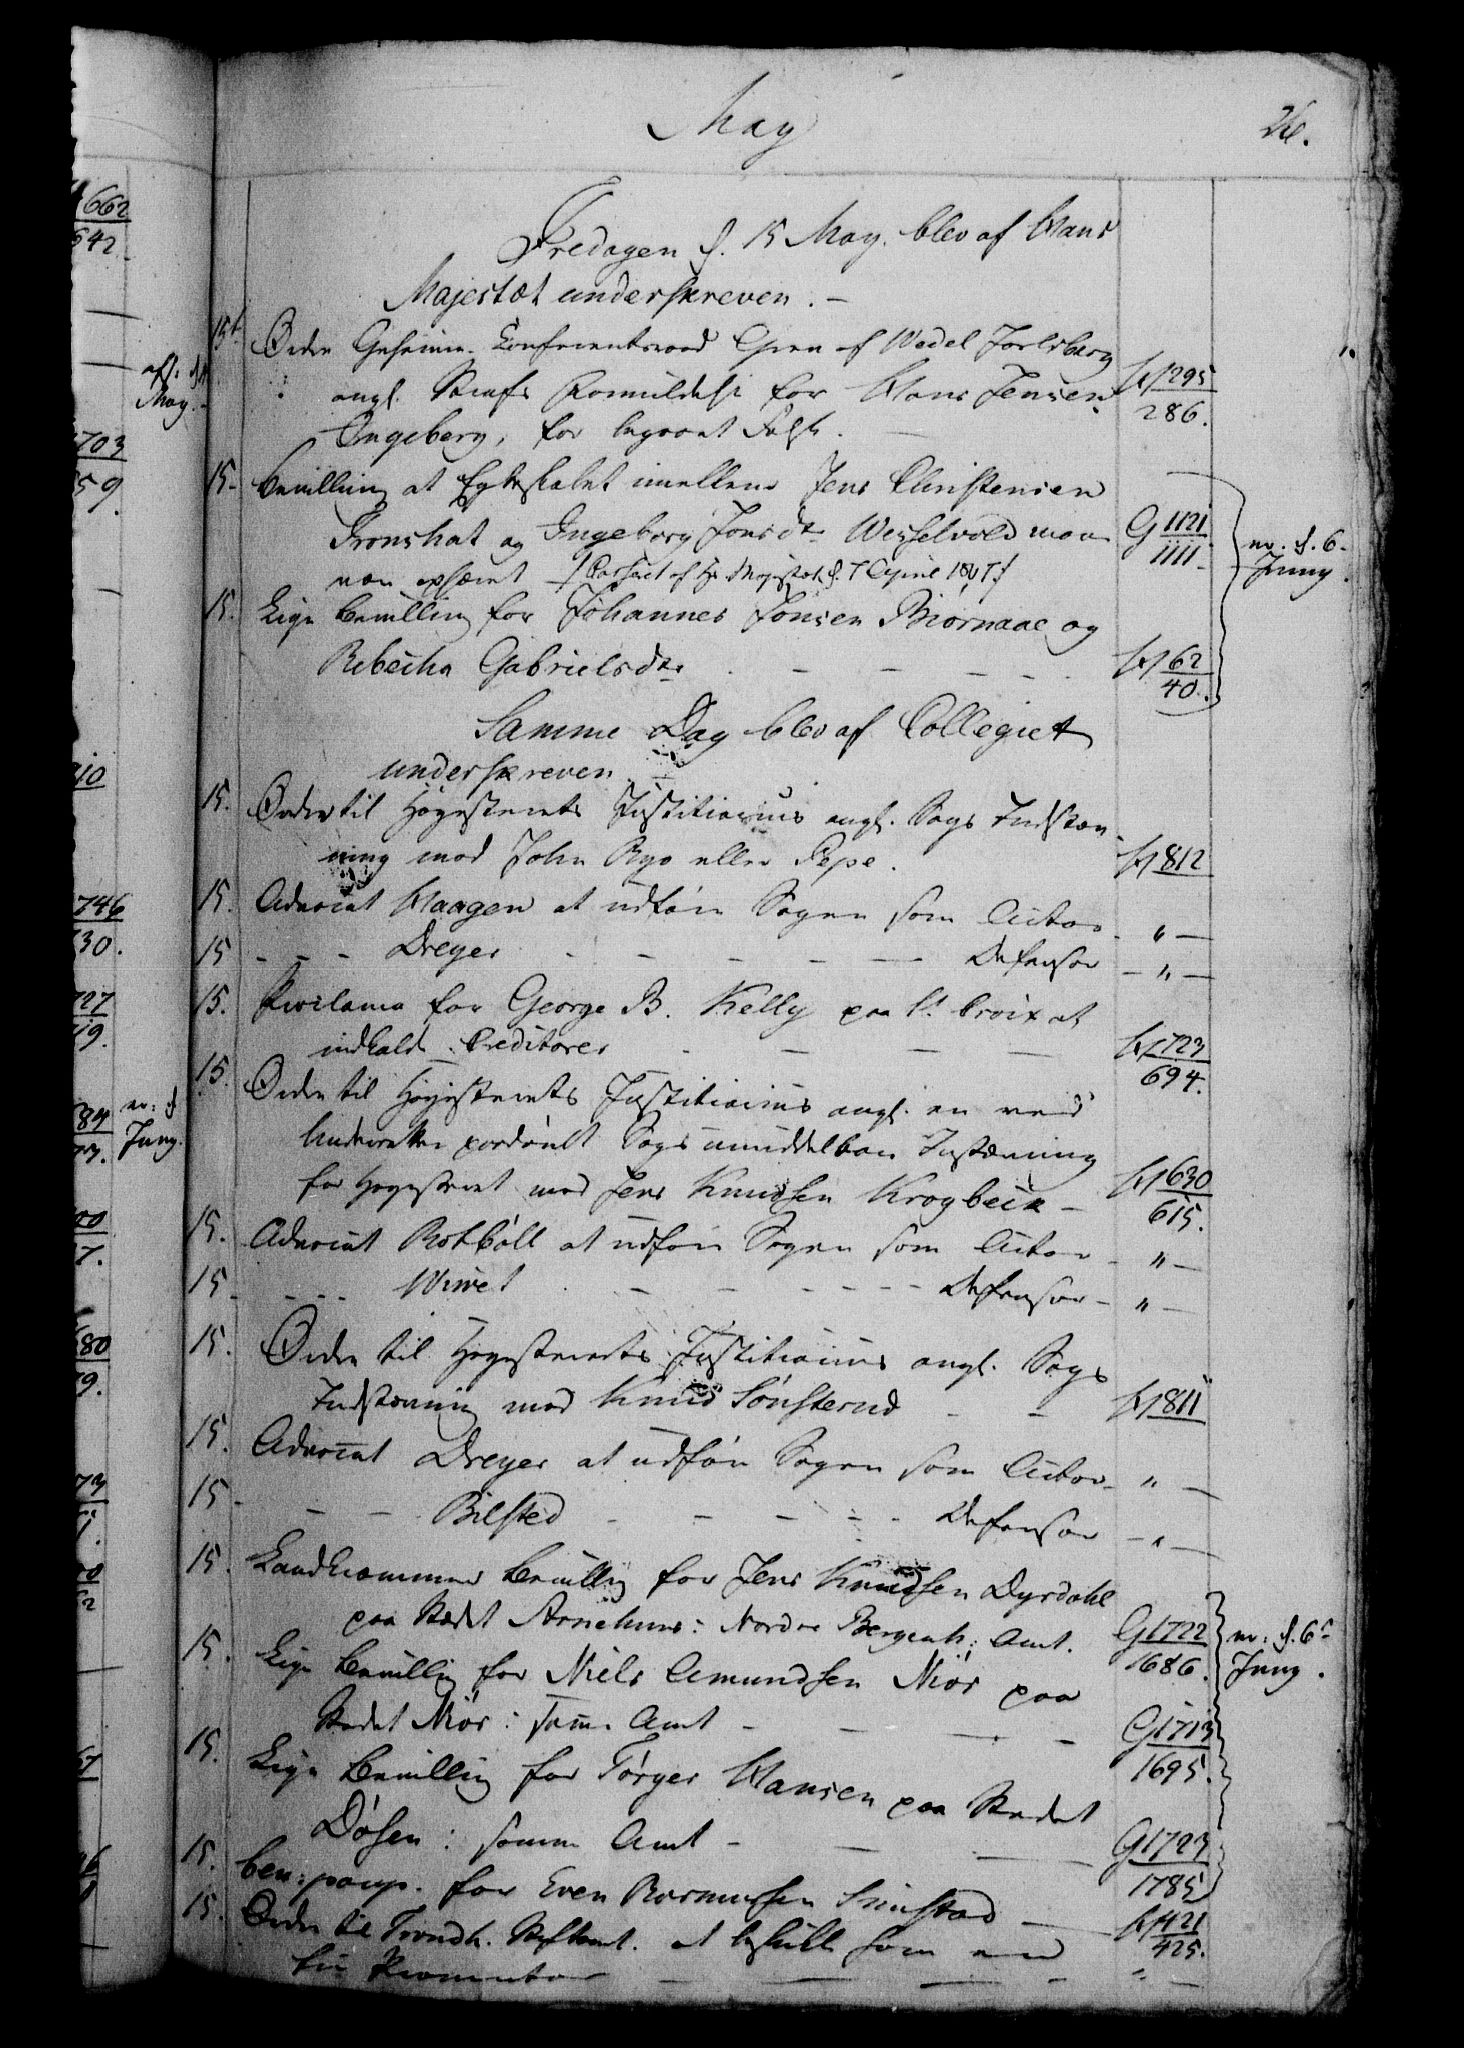 May
26.
Fredagen d. 15 May. blev af Hans
Majestæt underskreven. –
15t. Ordre Geheime-Conferentsraad Grev af Wedel Jarlsberg
ang. Straffs Formildelse for Hans Jensen
295
286.
Ongeberg, for begaaet
15. Bevilling at Egteskabet imellem Jens Christensen
Kronshat og Ingeborg Jonsdr. Wesselvold maae
G 1121
1111.
nv. d. 6
Juny.
være ophævet /: af Hs. Majestæt d. 7 April 1807 :/
15. Lige Bevilling for Johannes Jonsen Biornaae og
Rebecha Gabrielsdr. – – –
62
40.
Samme Dag blev af Collegiet
underskreven
15. Ordre til Høyesterets Justitiarius angl. Sags Indstæv-
ning mod John Ryo eller Pepe.
812
15. Advocat Haagen at udføre Sagen som Actor – " –
15 – – – Dreyer – – – – – Defensor – " –
15. Proclama for George B. Kelly paa St. Croix at
indkalde Creditorer – – –
723
694.
15. Ordre til Høyesterets Justitiarius angl. en ved
paadømt Sags umiddelbare Instævning
for Høyesteret mod Jens Knudsen Krogbeck –
630
615.
15. Advocat Rotbøll at udføre Sagen som Actor – " –
15. – – – Wivet – – – – – Defensor – " –
15. Ordre til Høyesterets Justitiarius angl. Sags
Indstævning mod Knud Sønsterud – –
811
15. Advocat Dreyer at udføre Sagen som Actor – " –
15 – – – Bilsted – – – – – Defensor – " –
15. Landkrammer Bevilling for Jens Knudsen Dyrdahl
paa Stædet Arnehuus: Nordre Bergenh: Amt.
G 1722
1686.
nv: d. 6t
Juny.
15. Lige Bevilling for Niels Amundsen Niør paa
Stædet Niør: samme Amt – – –
G 1713
1695.
15. Lige Bevilling for Tørger Hansen paa Stædet
Døsen: samme Amt – – –
G 1723
1785
15. ben: paup. for Even Rasmussen –
421
425.
15. Ordre til Trondh. Stiftamt. at beskikke ham en
– – – – " –
662
642.
May.
703
59.
10
746
30.
727
19.
84
nv: d
Juny.
7.
80
9.
73